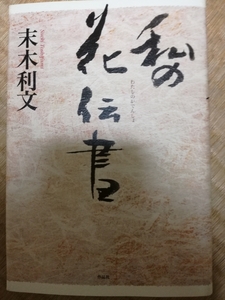 私の
花伝書
わたしのかでんしょ
末木利文